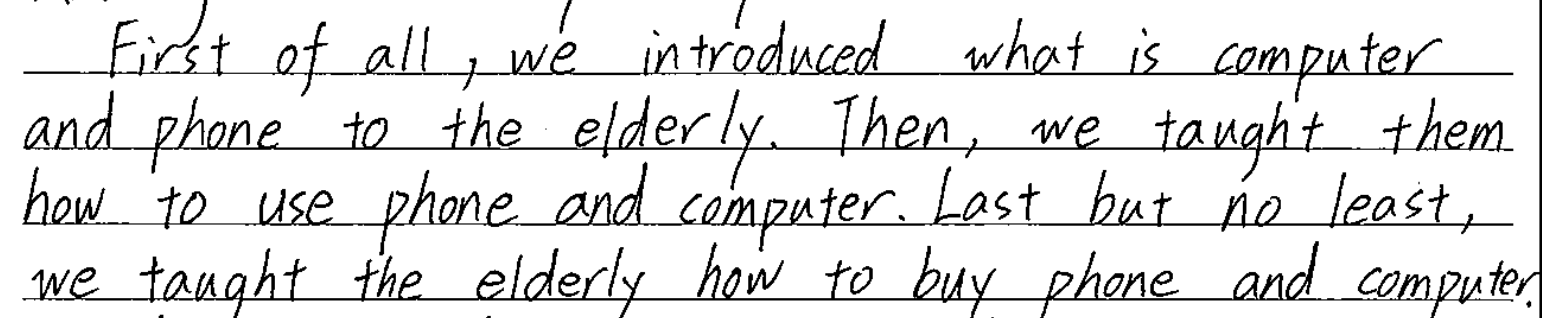 First of all, we introduced what is computer
and phone to the elderly. Then, we taught them
how to use phone and computer. Last but no least,
we taught the elderly how to buy phone and computer.